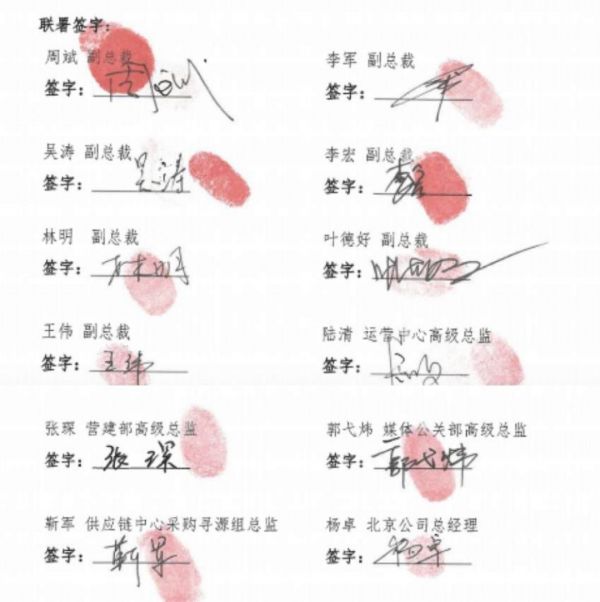 联署签字：
周斌 副总裁 李军 副总裁
签字： 周斌 签字：
吴涛 副总裁 李宏 副总裁
签字： 吴涛 签字： 李宏
林明 副总裁 叶德好 副总裁
签字： 林明 签字：
王伟 副总裁 陆清 运营中心高级总监
签字： 王玮 签字：
张琛 营建部高级总监 郭弋炜 媒体公关部高级总监
签字： 张琛 签字： 郭弋炜
靳军 供应链中心采购寻源组总监 杨卓 北京公司总经理
签字： 靳军 签字： 杨卓